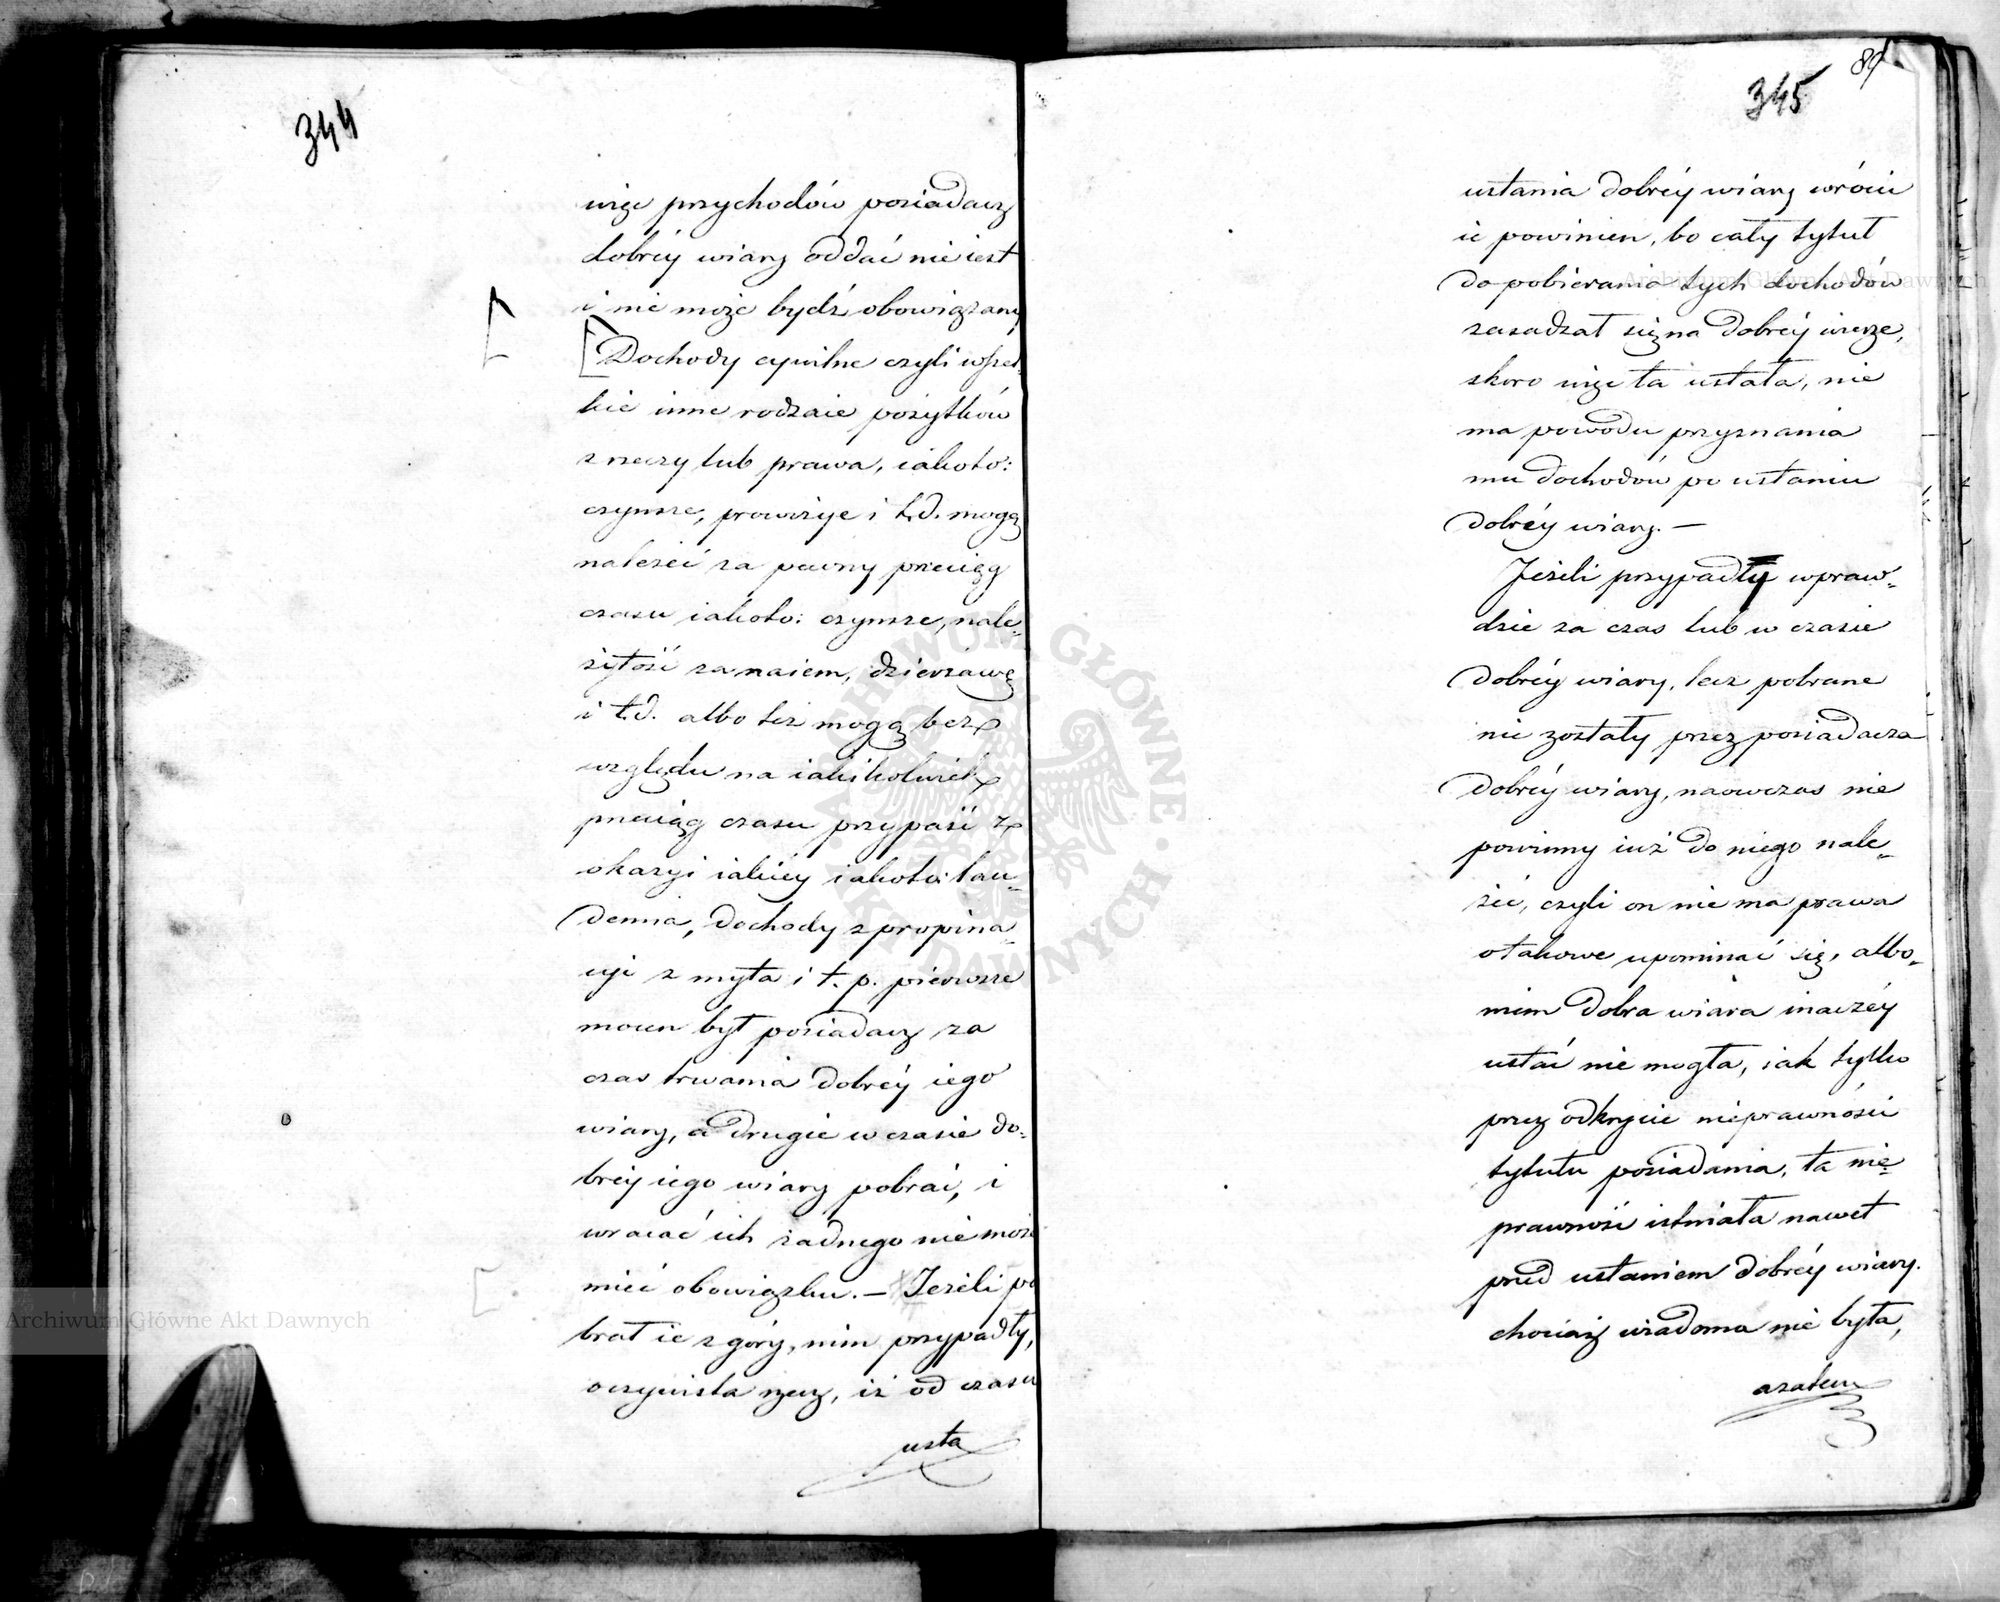 344
więc przychodów posiadacz
dobréy wiary oddać nie iest
i nie może bydź obowiązany
Dochody cywilne czyli wszel-
kie inne rodzaie pożytków
z rzeczy lub prawa, iakoto:
czynsze, prowizye i t.d. mogą
należeć za pewny przeciąg
czasu iakoto: czynsze, nale-
żytość za naiem, dzierżawę
i t.d. albo też mogą bez
względu na iakikolwiek
przeciąg czasu przypaść z
okazyi iakiéy iakoto: lau-
demia, dochody z propina-
cyi z myta i t. p. pierwsze
mocen był posiadacz za
czas trwania dobréy iego
wiary, a drugie w czasie do-
bréy iego wiary pobrać, i
wracać ich żadnego nie może
mieć obowiązku. — Jeżeli po
brał ie z góry, nim przypadły,
oczywista rzecz, iż od czasu
usta
89
345
ustania dobréy wiary wrócić
ie powinien, bo cały tytuł
do pobierania tych dochodów
zasadzał się na dobréy wierze,
skoro więc ta ustała, nie
ma powodu przyznania
mu dochodów po ustaniu
dobréy wiary. —
Jeżeli przypadły wpraw-
dzie za czas lub w czasie
dobréy wiary, lecz pobrane
nie zostały przez posiadacza
dobréy wiary, naówczas nie
powinny iuż do niego nale-
żeć, czyli on nie ma prawa
o takowe upominać się, albo-
wiem dobra wiara inaczéy
ustać nie mogła, iak tylko
przez odkrycie nieprawności
tytułu posiadania, ta nie-
prawność istniała nawet
przed ustaniem dobréy wiary.
chociaż wiadoma nie była,
azatem
Archiwum Główne Akt Dawnych
Archiwum Główne Akt Dawnych
ARCHIWUM GŁÓWNE AKT DAWNYCH